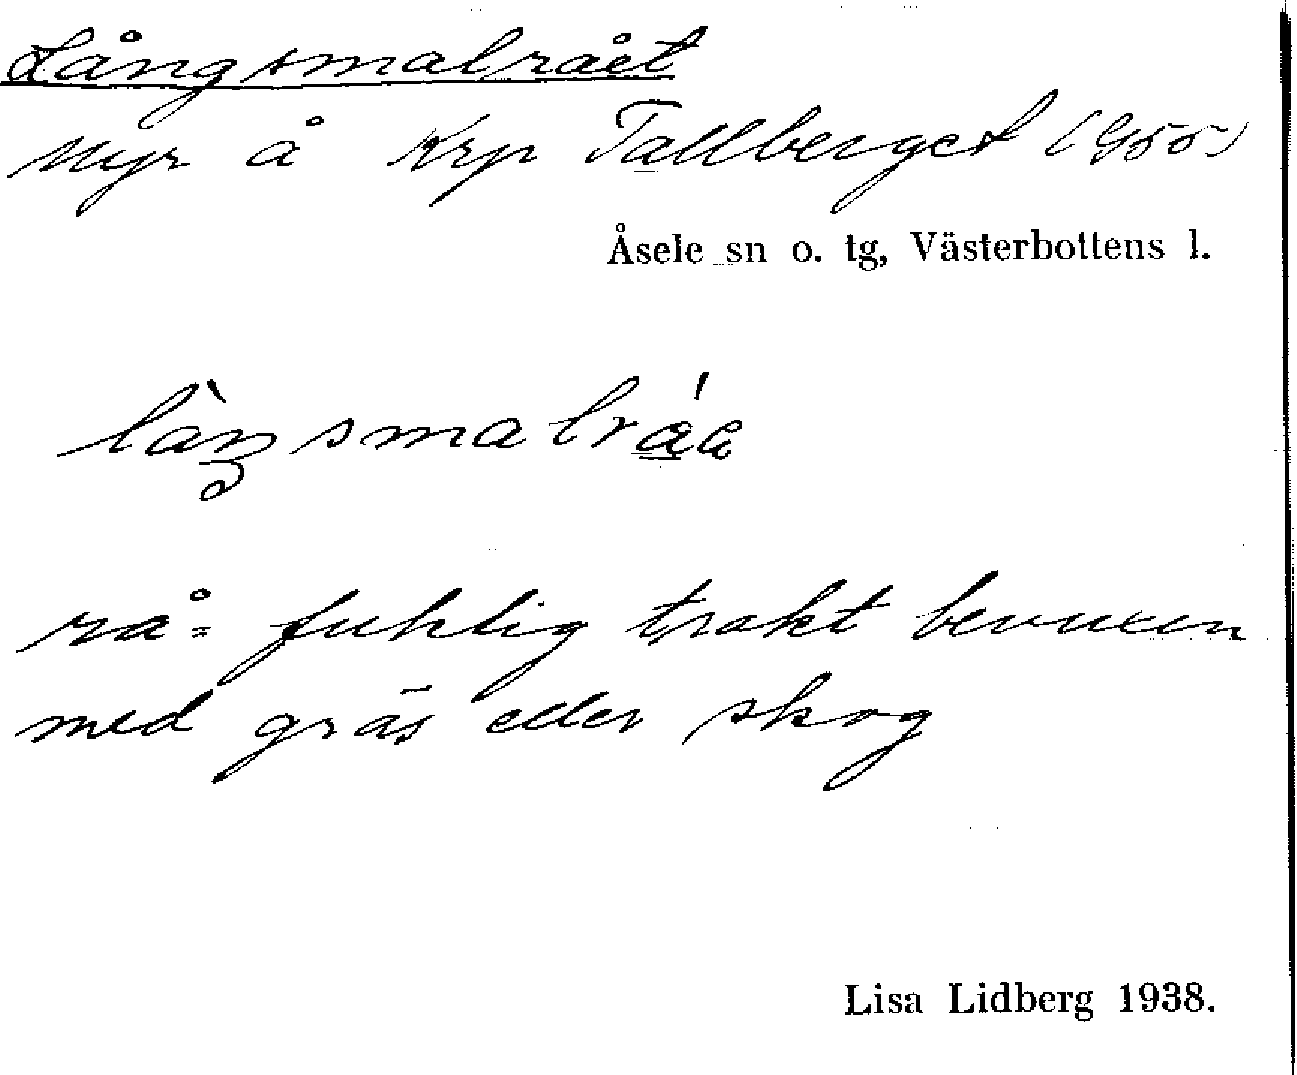 Långsmalrået
Myr å Krp Tallberget (G55)
Åsele sn o. tg, Västerbottens l.
rå = fuktig trakt bevuxen
med gräs eller skog
Lisa Lidberg 1938.